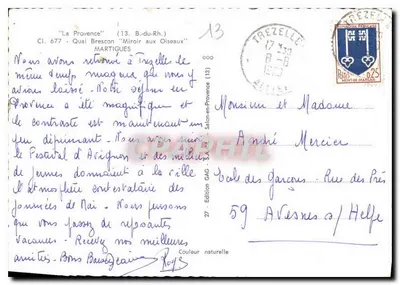 "La Provence" (13. B.-du-Rh.)
Cl. 677 - Quai Brescon "Miroir aux Oiseaux"
MARTIGUES
13
TREZELLE
17 H30
8 - 8
ALLIER
0,25
Nous avons retrouvé à Trezelle le
même temps maussade que nous y
avions laissé. Notre séjour en
Provence a été magnifique et
le contraste est maintenant un
peu déprimant. Nous avons suivi
le Festival d'Avignon et des milliers
de jeunes donnaient à la ville
l'atmosphère contestataire des
journées de Mai. Nous pensons
que vous passez de reposantes
vacances. Recevez nos meilleures
amitiés. Bons Baisers Jeanine
Roger
Monsieur et Madame
André Mercier
Ecole des Garçons - Rue des Prés
59 Avesnes s/ Helpe
27 Edition GAG Salon-en-Provence (13)
Couleur naturelle
Cartes-Postales.com